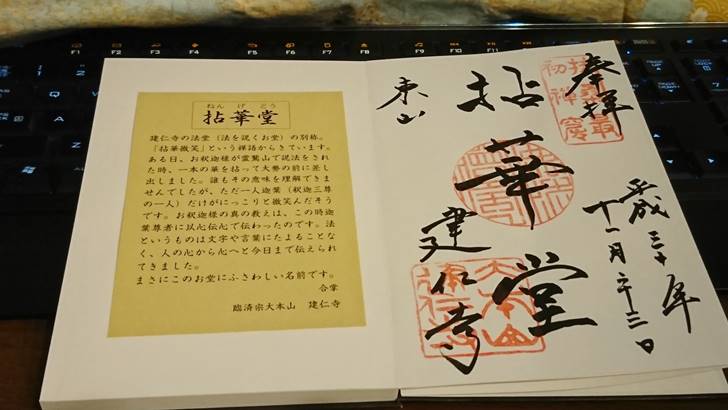 ねんげどう
拈華堂
建仁寺の法堂（法を説くお堂）の別称。
「拈華微笑」という禅語からきています。
ある日、お釈迦様が霊鷲山で説法をされ
た時、一本の華を拈って大勢の前に差
し出しました。誰もその意味を理解できま
せんでしたが、ただ一人迦葉（釈迦三尊
の一人）だけがにっこりと微笑んだそう
です。お釈迦様の真の教えは、この時迦
葉尊者に以心伝心で伝わったのです。法
というものは文字や言葉にたよることな
く、人の心から心へと今日まで伝えられ
てきました。
まさにこのお堂にふさわしい名前です。
合掌
臨済宗大本山　建仁寺
奉拝
扶桑最
初禅窟
平成三十年
十一月二十三日
拈華堂
東山
建仁寺
F1
F2
F3
F4
F5
F6
F7
F8